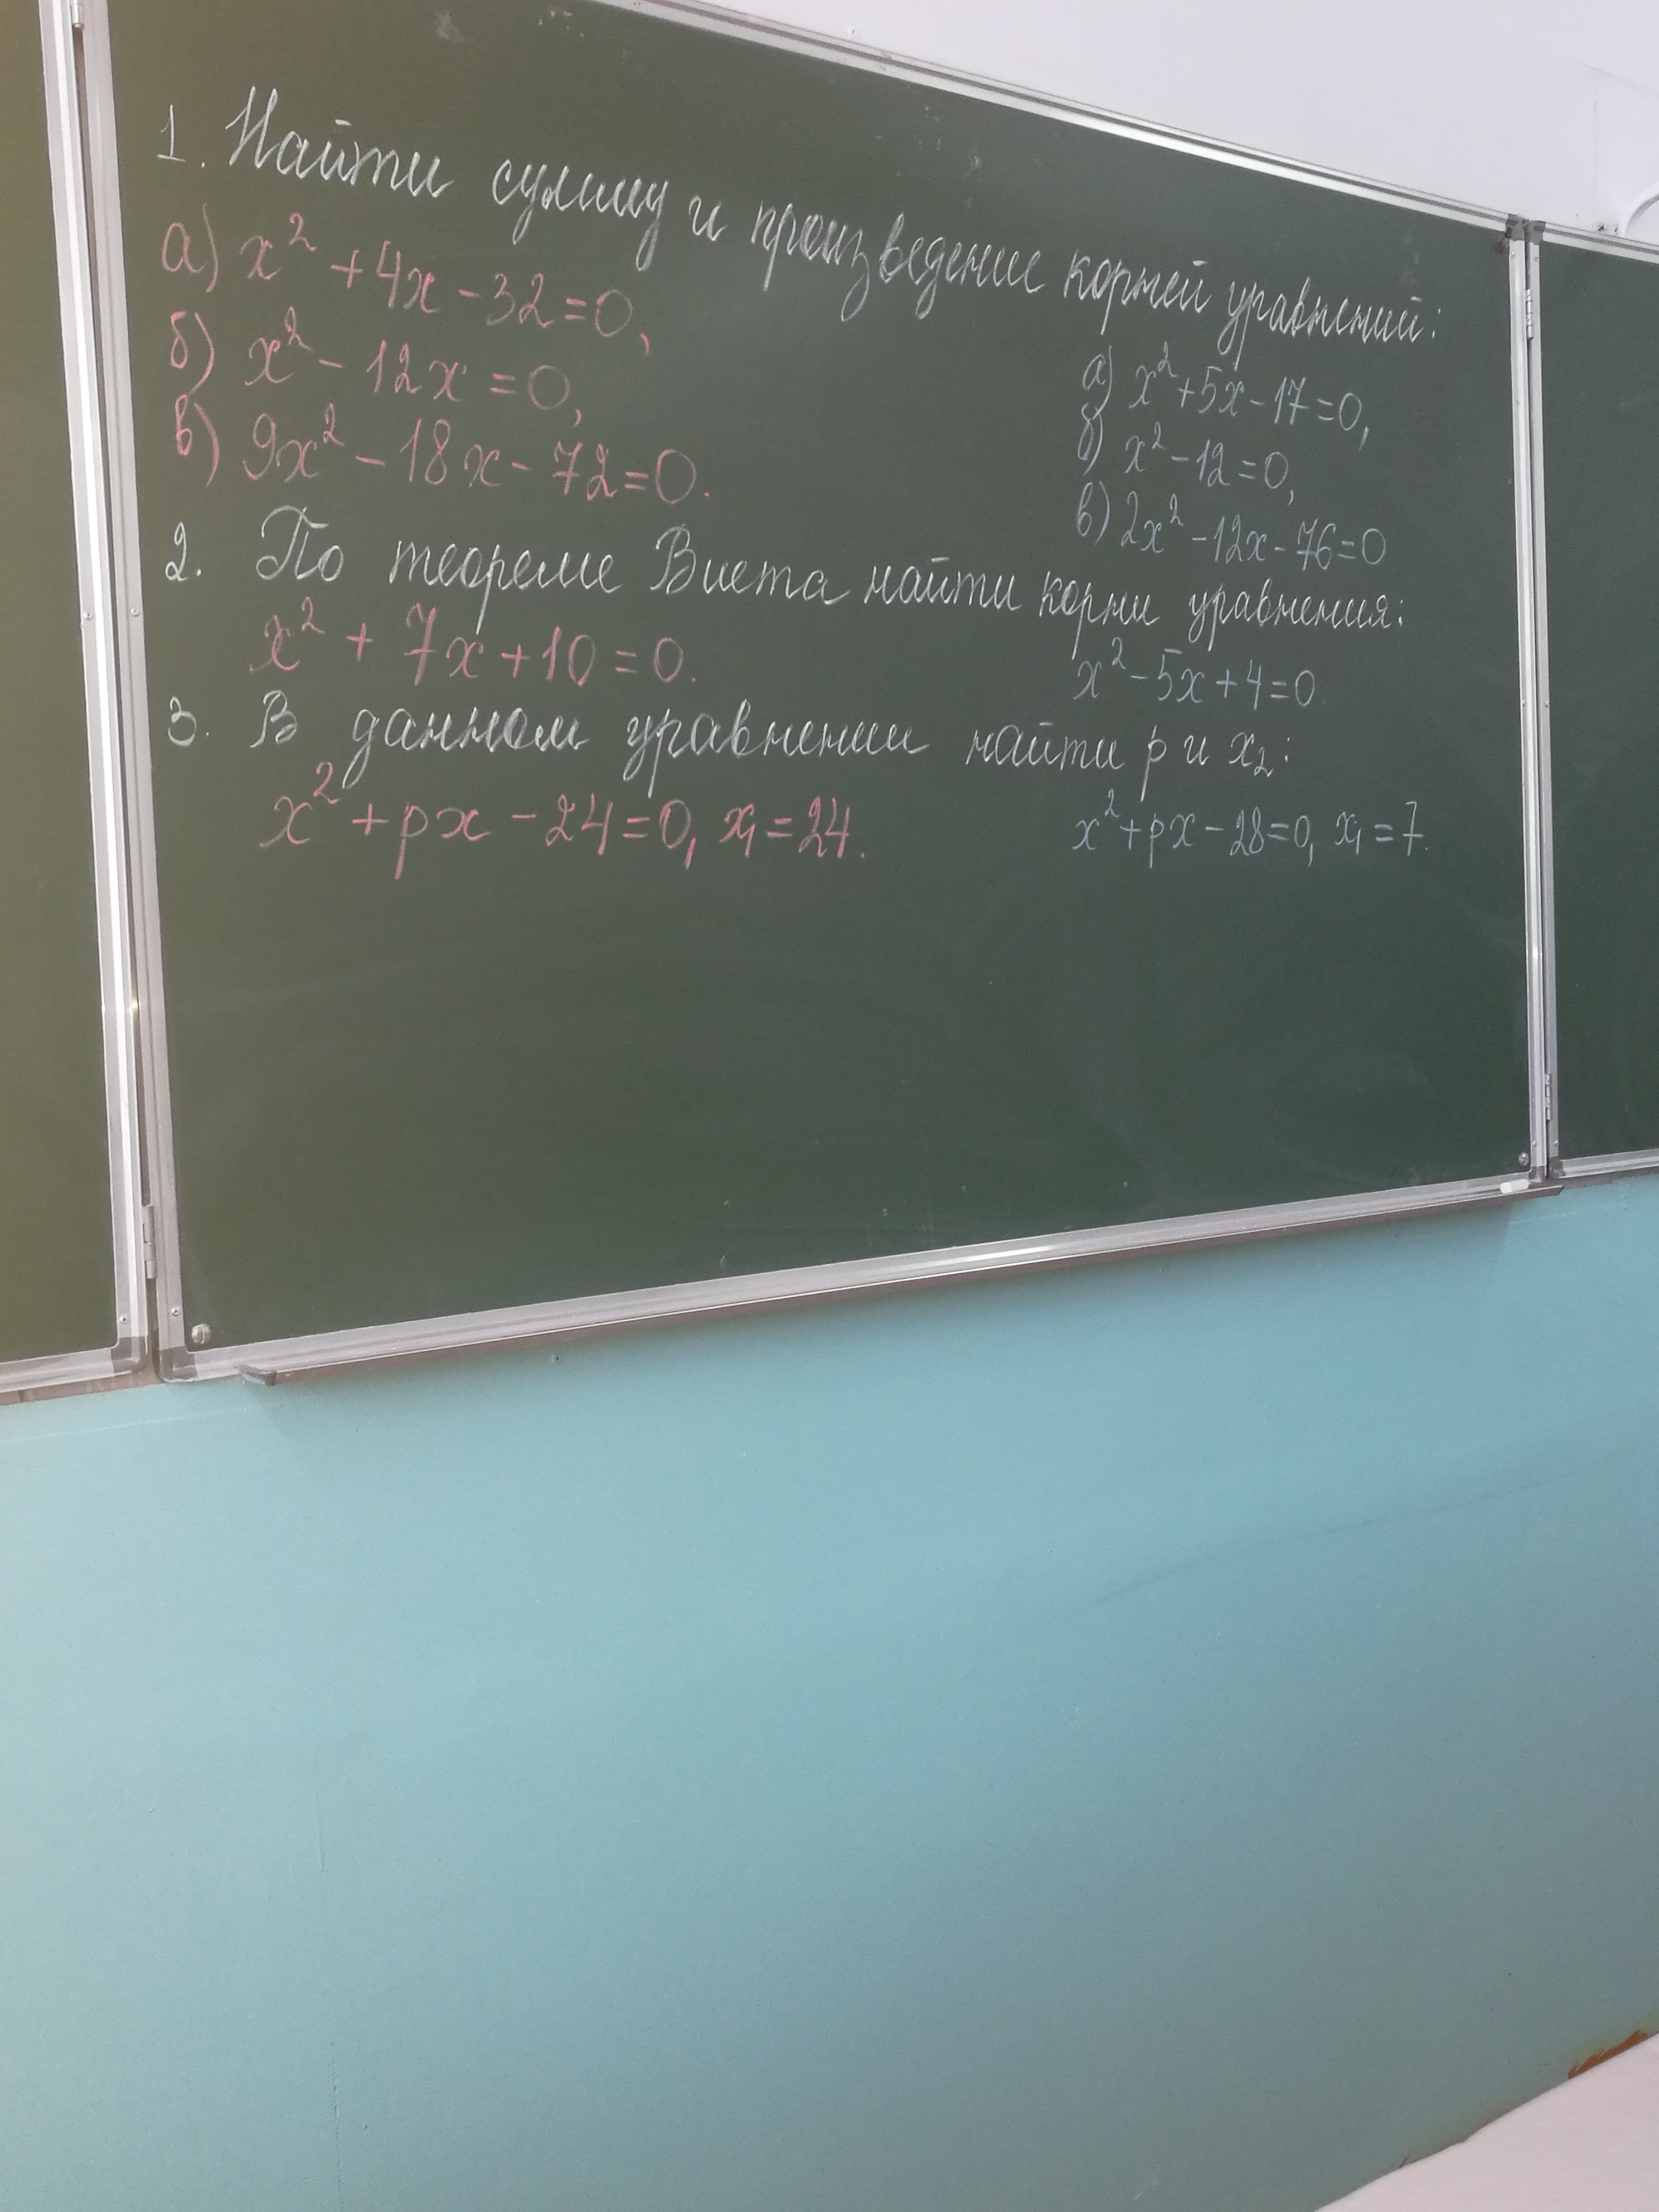 1. Найти сумму и произведение корней уравнений:
а) x² + 4x - 32 = 0,
б) x² - 12x = 0,
в) 9x² - 18x - 72 = 0.
а) x² + 5x - 17 = 0,
б) x² - 12 = 0,
в) 2x² - 12x - 76 = 0
2. По теореме Виета найти корни уравнения:
x² + 7x + 10 = 0.
x² - 5x + 4 = 0.
3. В данном уравнении найти p и x₂:
x² + px - 24 = 0, x₁ = 24.
x² + px - 28 = 0, x₁ = 7.